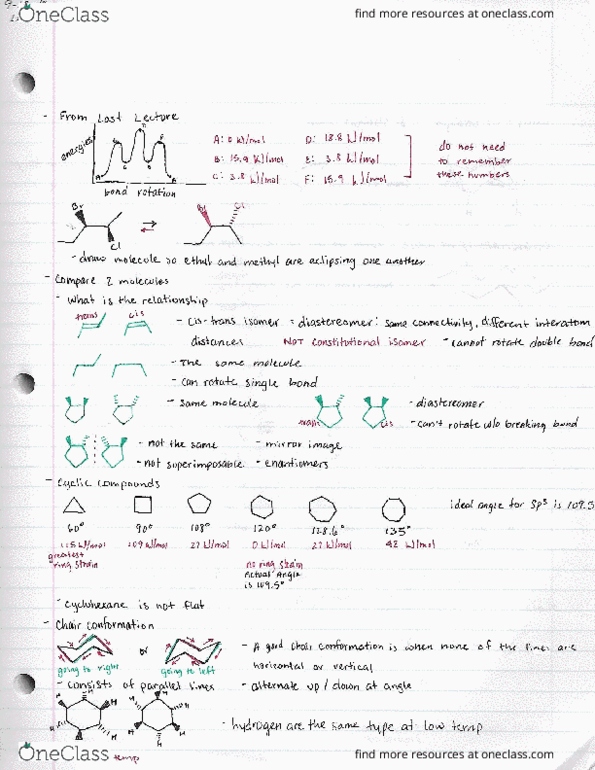 OneClass
find more resources at oneclass.com
- From Last Lecture
energies
A
B
C
D
E
F
A
bond rotation
A: 0 kJ/mol
B: 15.9 kJ/mol
C: 3.8 kJ/mol
D: 18.8 kJ/mol
E: 3.8 kJ/mol
F: 15.9 kJ/mol
do not need
to remember
these numbers
Br
Cl
Br
Cl
- draw molecule so ethyl and methyl are eclipsing one another
- Compare 2 molecules
- What is the relationship
trans
cis
- cis-trans isomer = diastereomer: same connectivity, different interatom
distances
NOT constitutional isomer
- cannot rotate double bond
- The same molecule
- can rotate single bond
- same molecule
trans
cis
- diastereomer
- can't rotate w/o breaking bond
- not the same
- mirror image
- not superimposable
- enantiomers
- Cyclic compounds
ideal angle for sp³ is 109.5
60°
90°
108°
120°
128.6°
135°
115 kJ/mol
109 kJ/mol
27 kJ/mol
0 kJ/mol
27 kJ/mol
42 kJ/mol
greatest
ring strain
no ring strain
Actual Angle
is 109.5°
- cyclohexane is not flat
- Chair conformation
or
going to right
going to left
- A good chair conformation is when none of the lines are
horizontal or vertical
- consists of parallel lines
- alternate up / down at angle
H
H
H
H
H
H
H
H
H
H
H
H
- hydrogen are the same type at low temp
temp
OneClass
find more resources at oneclass.com